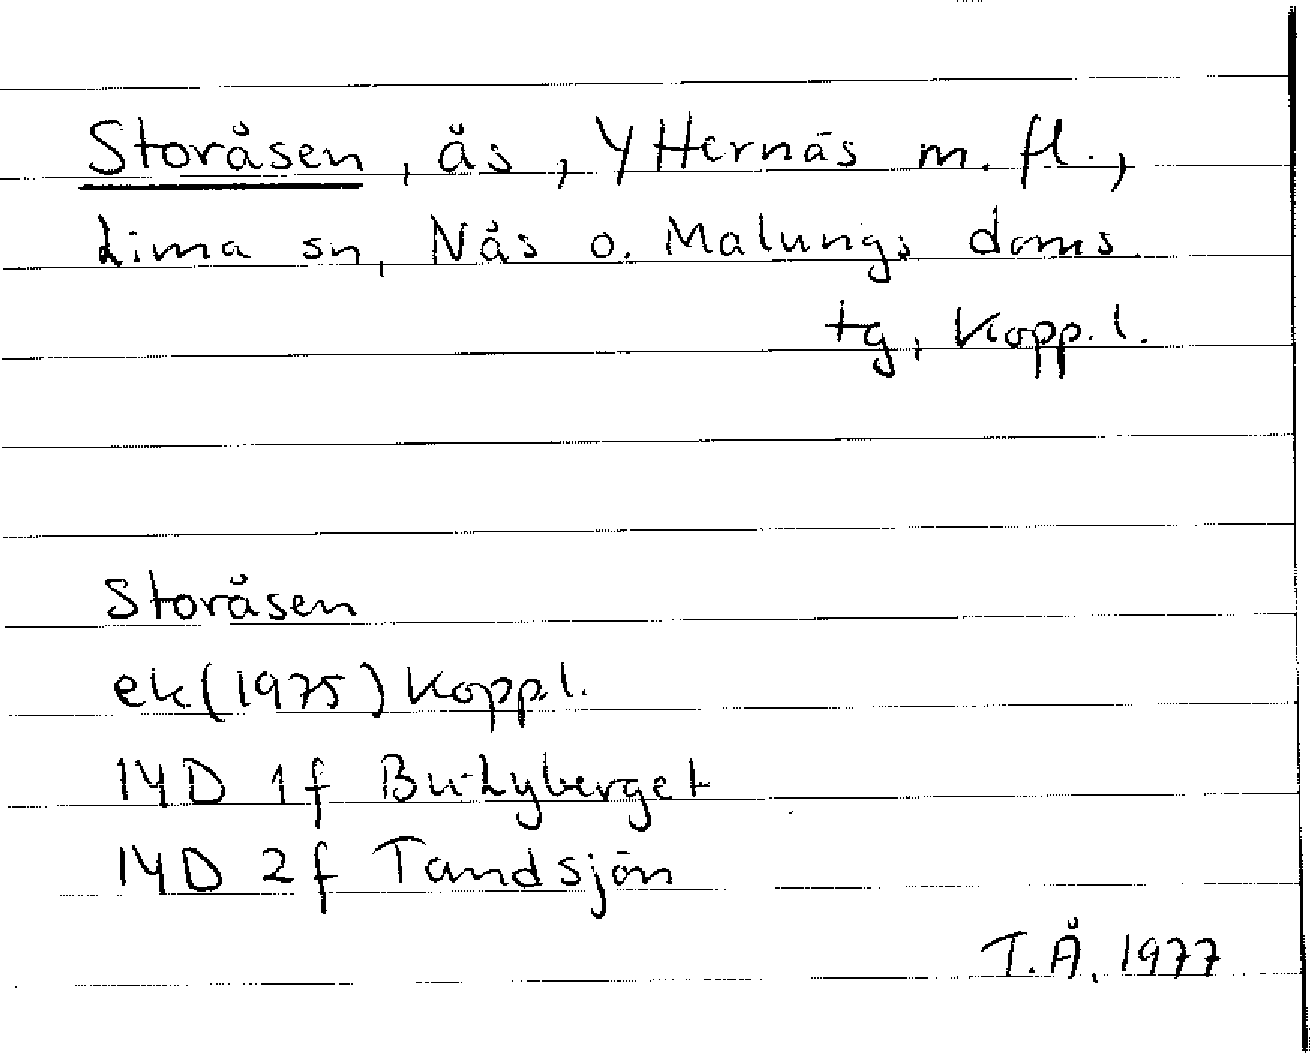 Storåsen, ås, Ytternäs m. fl.,
Lima sn, Nås o. Malungs doms
tg, Kopp. l.
Storåsen
ek (1975) Kopp l.
14D 1f
14D 2f Tandsjön
T.Å. 1977